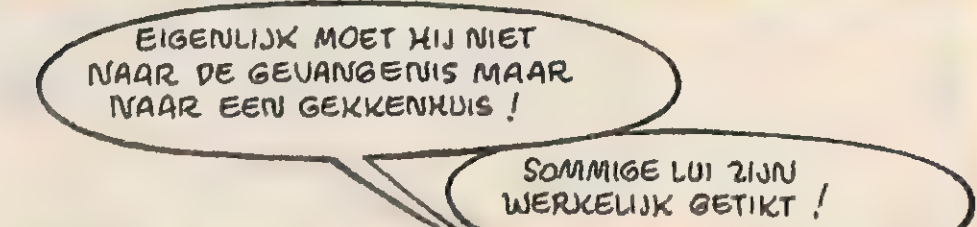 EIGENLIJK MOET HIJ NIET
NAAR DE GEVANGENIS MAAR
NAAR EEN GEKKENHUIS !
SOMMIGE LUI ZIJN
WERKELIJK GETIKT !